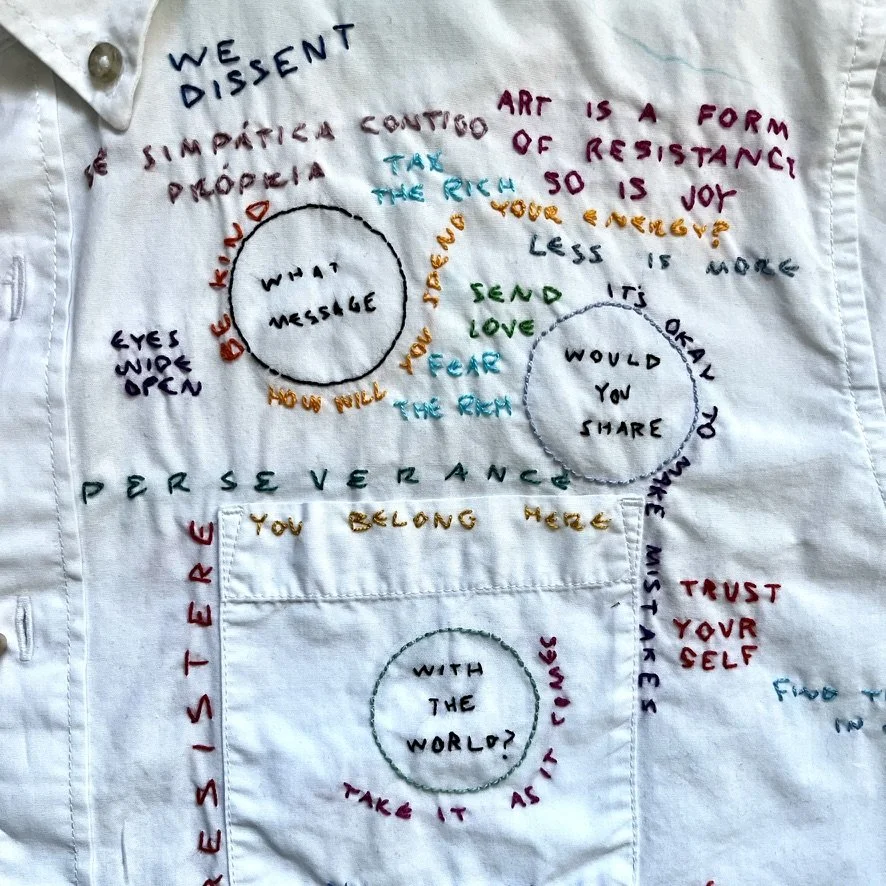 WE
DISSENT
SÊ SIMPÁTICA CONTIGO
PRÓPRIA
ART IS A FORM
OF RESISTANCE
SO IS JOY
TAX
THE RICH
BE KIND
WHAT
MESSAGE
HOW WILL YOU SPEND YOUR ENERGY?
LESS IS MORE
SEND
LOVE
EYES
WIDE
OPEN
FEAR
THE RICH
IT'S OKAY TO MAKE MISTAKES
WOULD
YOU
SHARE
PERSEVERANCE
YOU BELONG HERE
RESISTERE
TRUST
YOUR
SELF
WITH
THE
WORLD?
TAKE IT AS IT COMES
FIND
IN